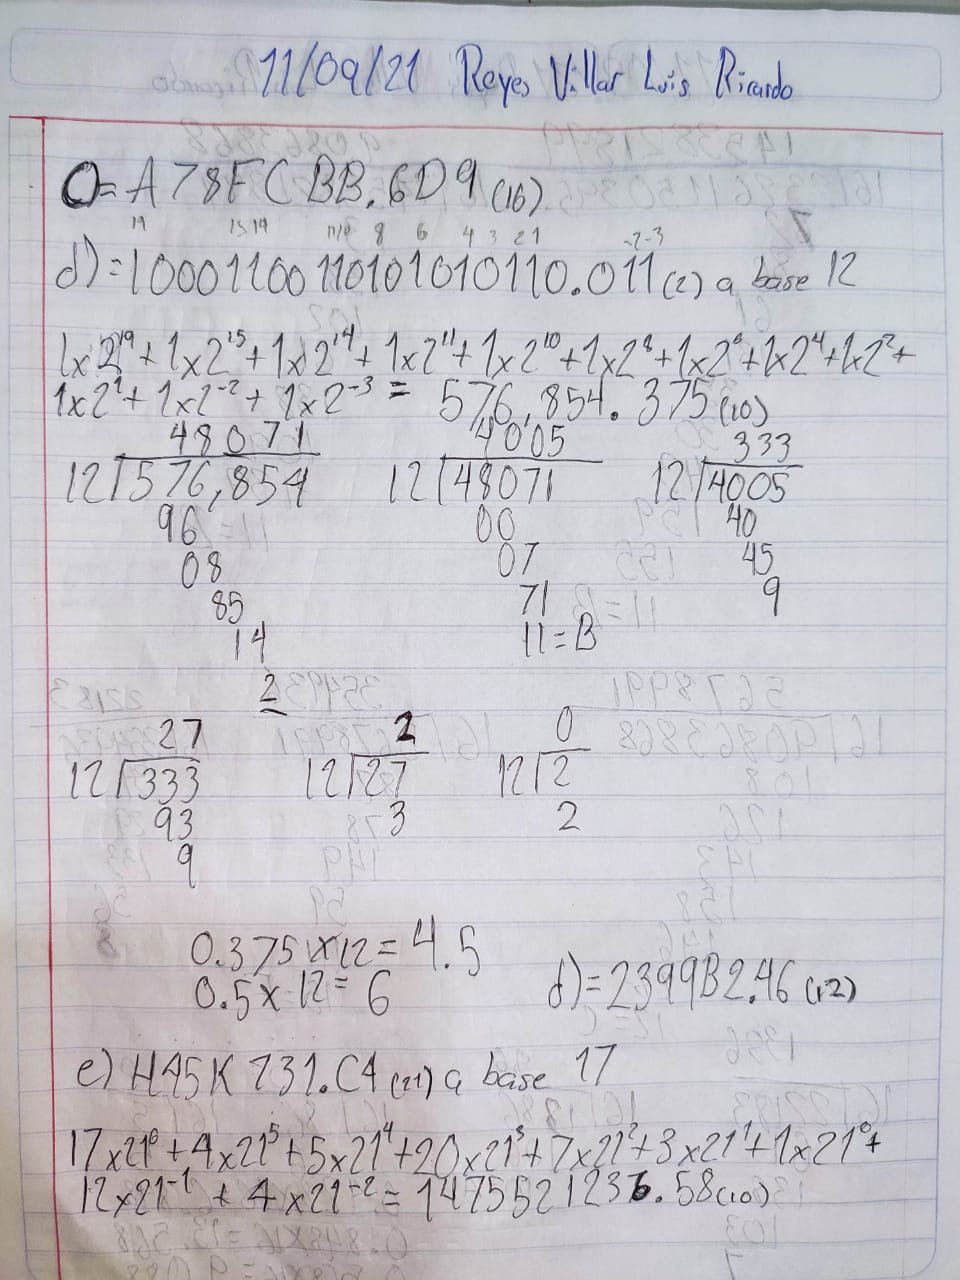 11/09/21 Reyes Villar Luis Ricardo
C=A78FCBB.6D9 (16)
19 15 14 11 10 8 6 4 3 2 1 -2 -3
d)=10001100110101010110.011 (2) a base 12
1x2^19+1x2^15+1x2^14+1x2^11+1x2^10+1x2^8+1x2^6+1x2^4+1x2^2+
1x2^1+1x2^-2+1x2^-3= 576,854.375 (10)
48071 4005 333
12 576,854 12 48071 12 4005
96 00 40
08 07 45
85 71 9
14 11=B
2
27 2 0
12 333 12 27 12 2
93 3 2
9
0.375x12=4.5
0.5x12=6 d)=2399B2.46 (12)
e) H45K731.C4 (21) a base 17
17x21^6+4x21^5+5x21^4+20x21^3+7x21^2+3x21^1+1x21^0+
12x21^-1+4x21^-2=1475521236.58 (10)